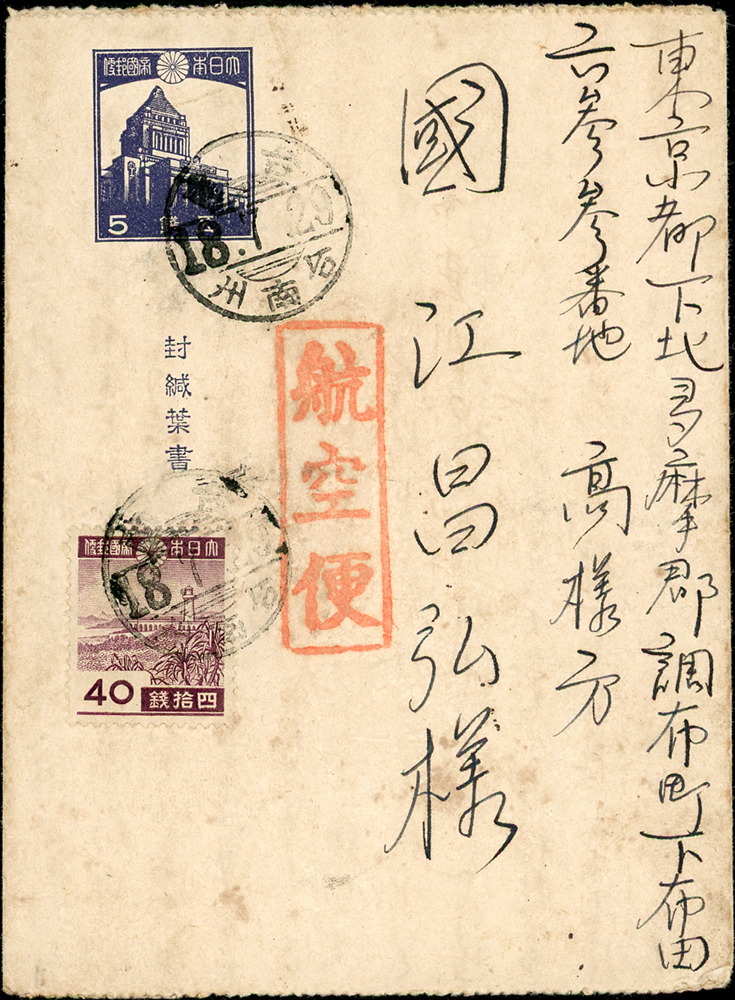 東京都下北多摩郡調布町下布田
六参参番地 高様方
國江昌弘様
航空便
大日本帝國郵便
5
封緘葉書
18.7.29
台南州
大日本帝國郵便
40
四拾錢
18